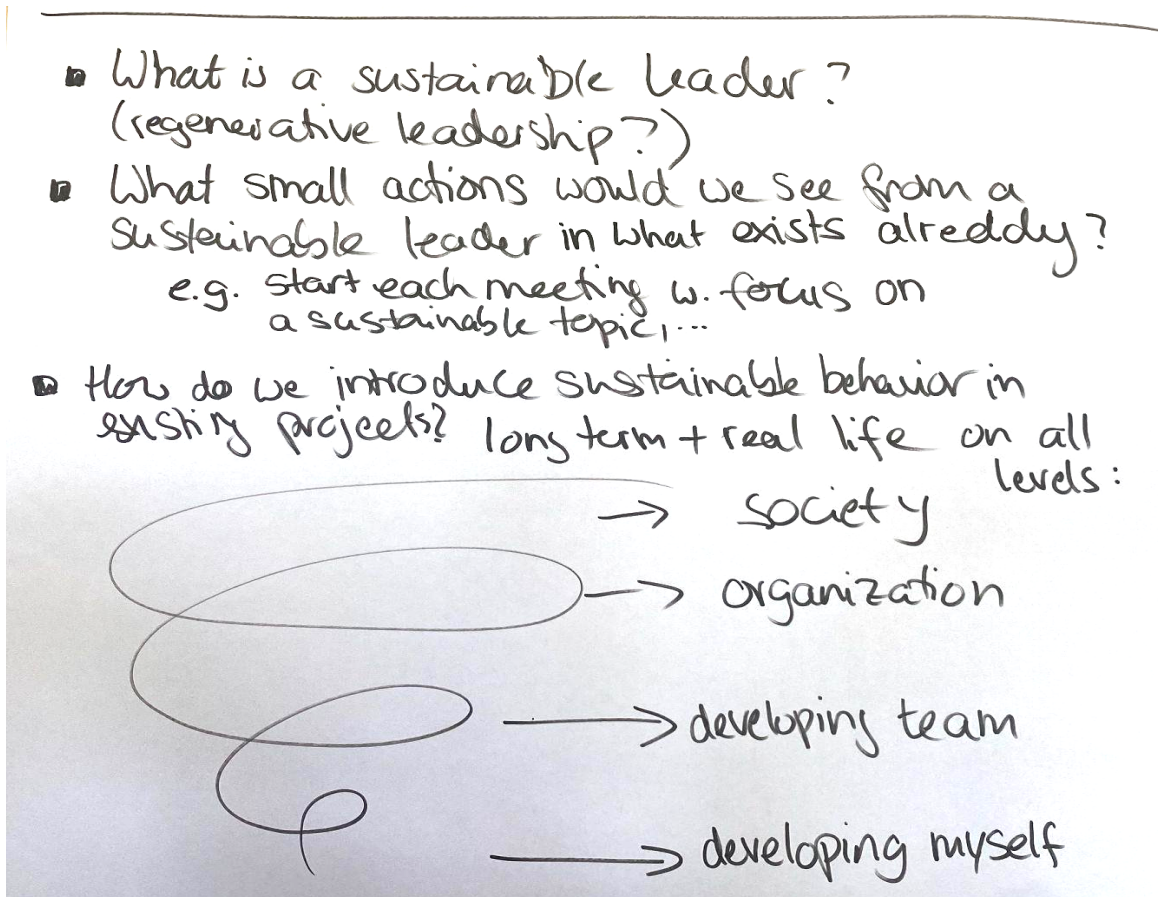 What is a sustainable leader?
(regenerative leadership?)
What small actions would we see from a
sustainable leader in what exists alreddy?
e.g. start each meeting w. focus on
a sustainable topic,...
How do we introduce sustainable behavior in
existing projects? long term + real life on all
levels:
→ society
→ organization
→ developing team
→ developing myself